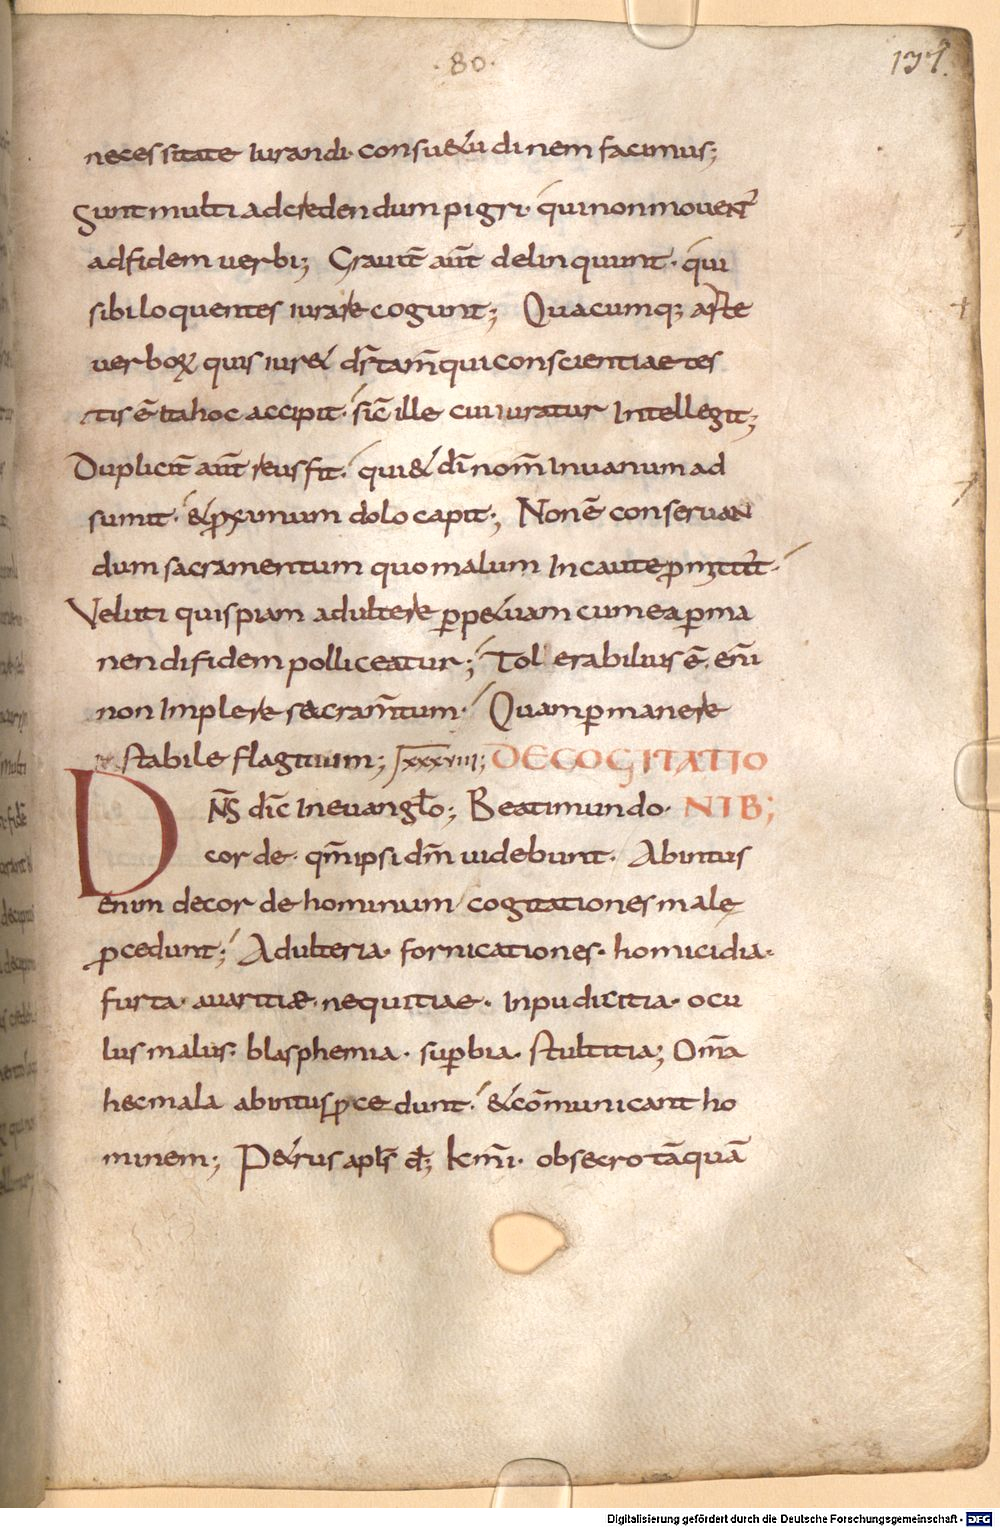 · 80 ·
137.
necessitate iurandi· consu&udinem facimus;
Sunt multi adcredendum pigri· qui non mouent̄
adfidem uerbi; Grauit̄ aūt delinquunt· qui
sibi loquentes iurare cogunt; Quacumq; arte
uerboꝝ quis iur& d̄s tam̄ qui conscientiae tes
tis ē ita hoc accipit· sic̄ ille cui iuratur Intellegit;
Duplicit̄ aūt reus fit· qui & dī nom̄ Inuanum ad
sumit· & ꝓximum dolo capit; Non ē conseruan
dum sacramentum quo malum Incaute ꝓmittit̄·
Veluti quispiam adultere ꝑp&uam cum ea ꝑma
nendi fidem polliceatur; Tollerabilius ē eni̅
non Implere sacram̄tum· Quam ꝑmanere
stabile flagitium; xxxviii; DE COGITATIO
D N̄S dic̄ In euangl̄o; Beati mundo· NIB;
corde· qm̄ ipsi dm̄ uidebunt· Abintus
enim decorde hominum cogitationes male
ꝓcedunt; Adulteria· fornicationes· homicidia·
furta· auaritiæ· nequitiae· Inpudicitia· ocu
lus malus· blasphemia· suꝑbia· stultitia; Om̄a
hec mala abintus ꝓcedunt· & com̄unicant ho
minem; P&rus apl̄s d̄; km̄i· obsecro tāquā
Digitalisierung gefördert durch die Deutsche Forschungsgemeinschaft - DFG